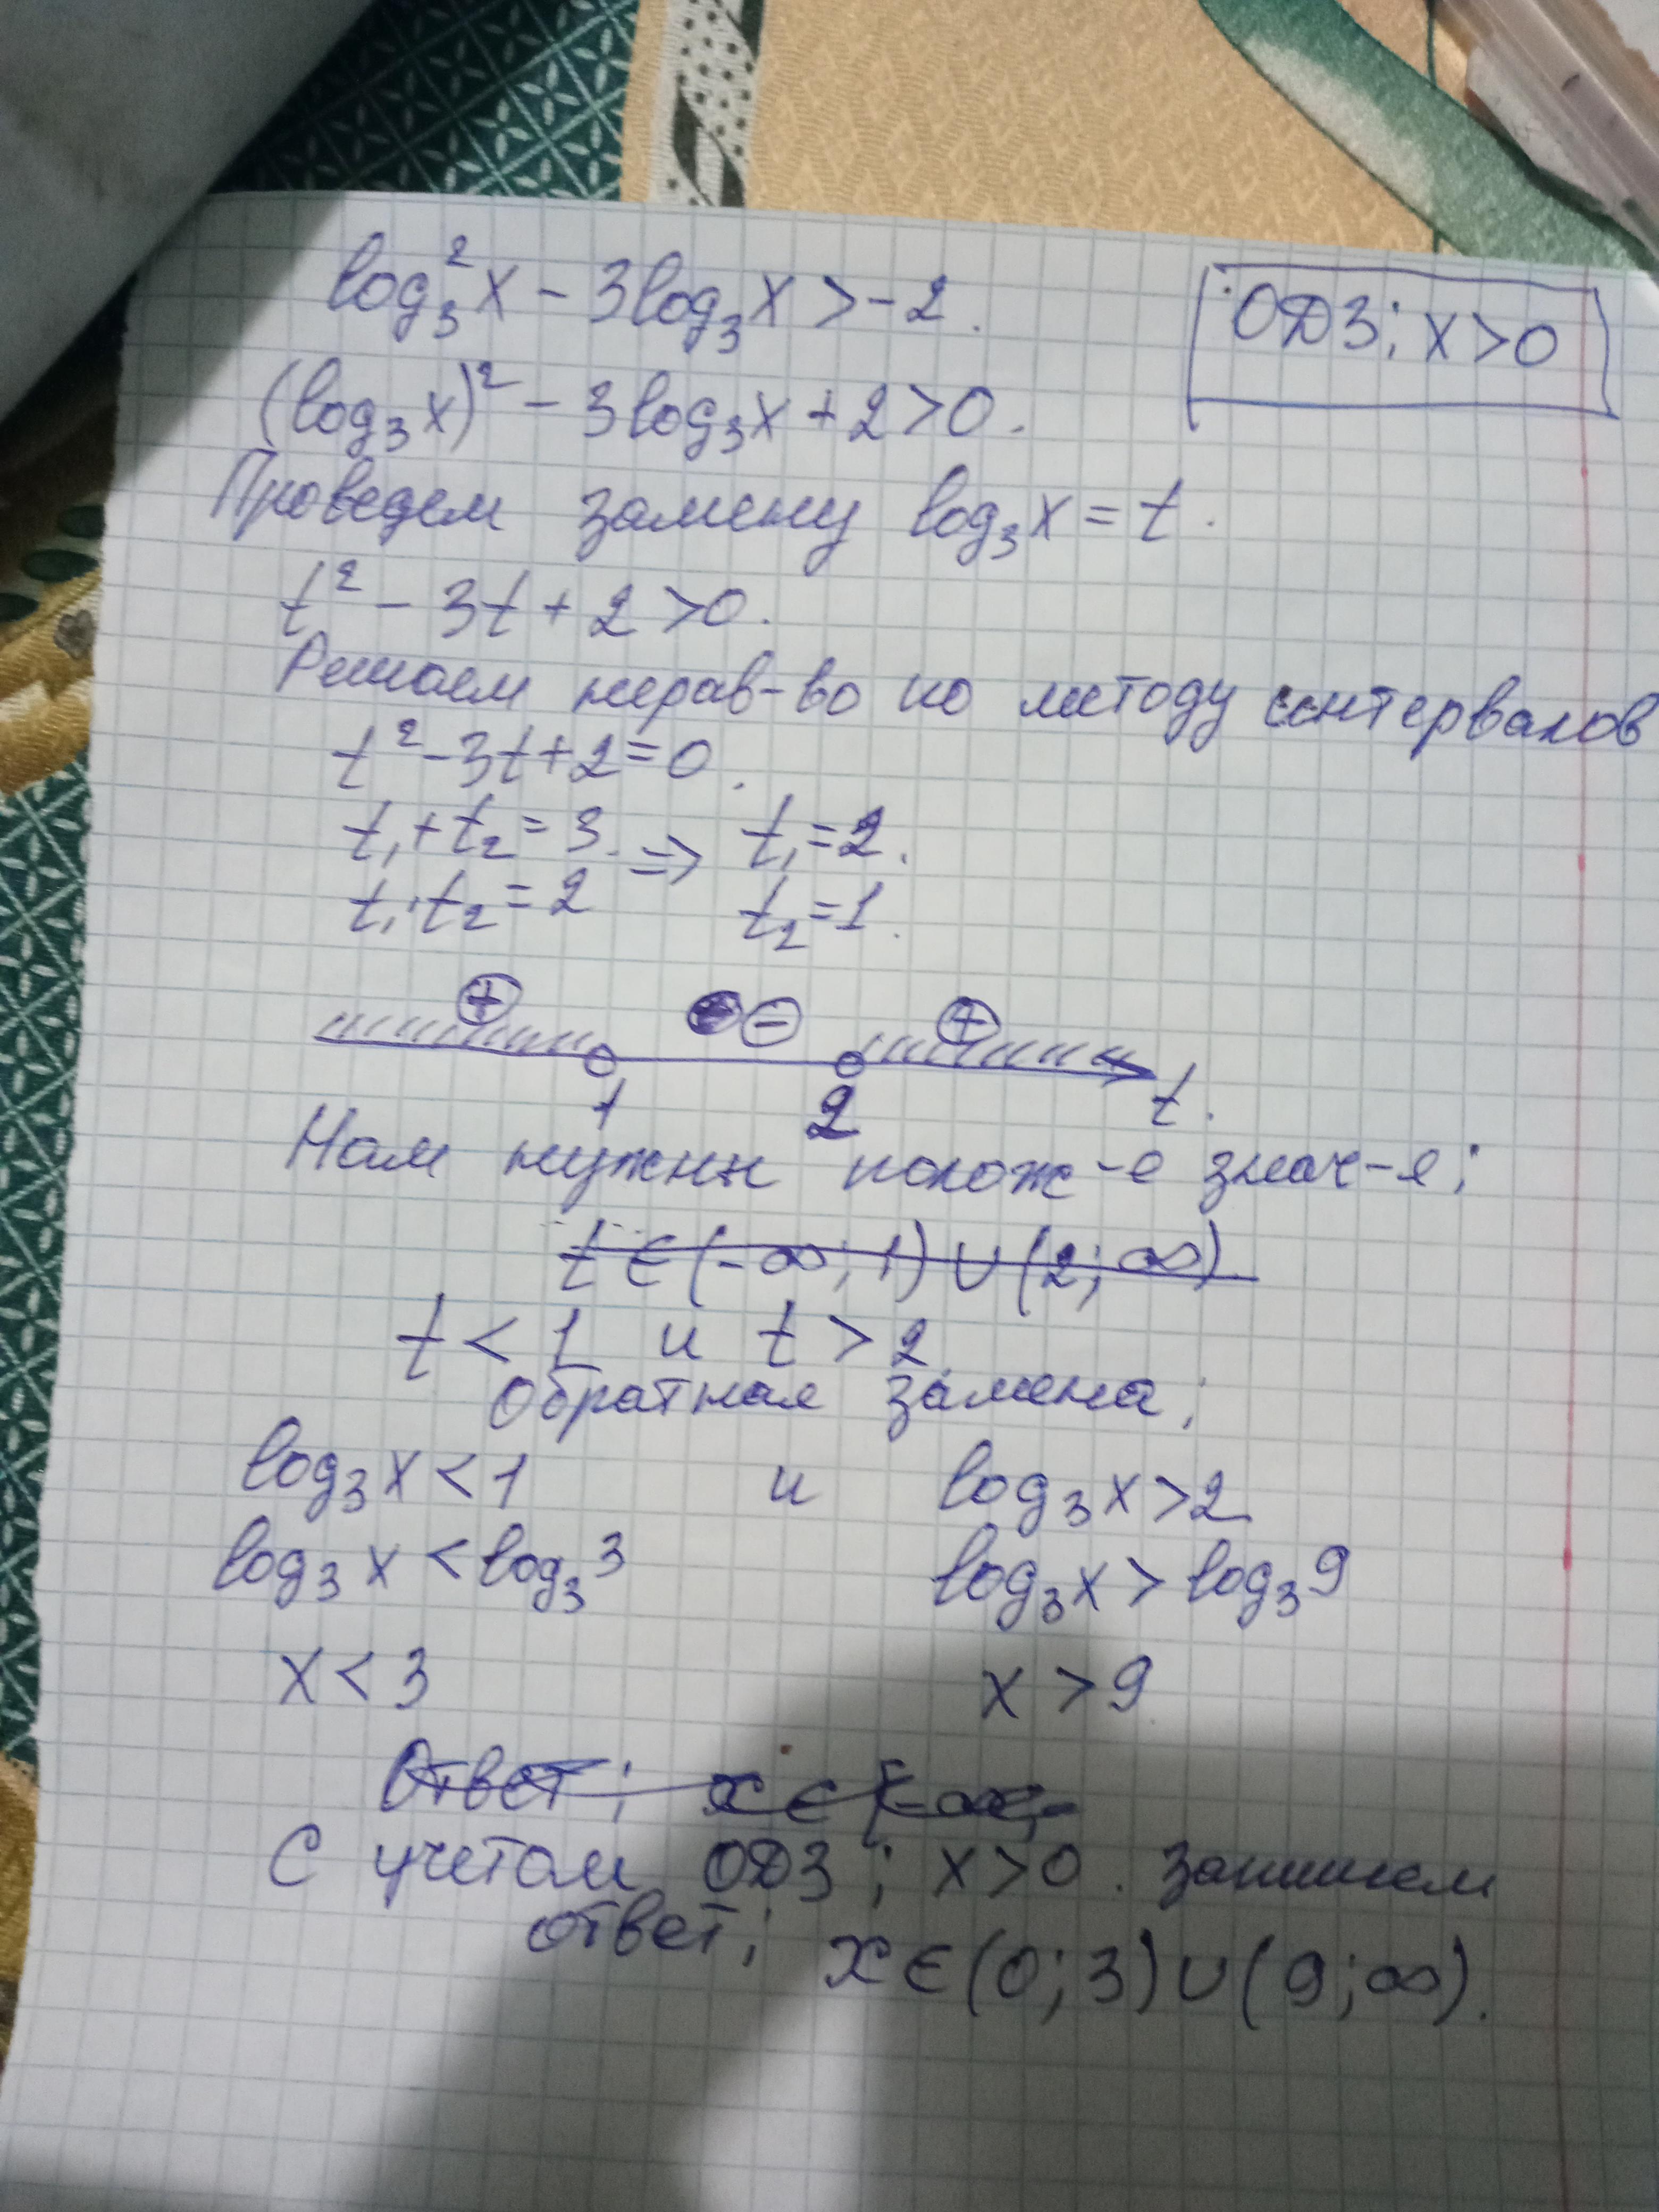 log₃²x - 3log₃x > -2.
ОДЗ; x>0
(log₃x)² - 3log₃x + 2 > 0.
Проведем замену log₃x = t.
t² - 3t + 2 > 0.
Решаем нерав-во по методу интервалов
t² - 3t + 2 = 0.
t₁ + t₂ = 3. => t₁ = 2.
t₁ · t₂ = 2 t₂ = 1.
+ - +
1 2 t.
Нам нужны полож-е знач-я;
t ∈ (-∞; 1) ∪ (2; ∞)
t < 1 и t > 2.
Обратная замена;
log₃x < 1 и log₃x > 2
log₃x < log₃3 log₃x > log₃9
x < 3 x > 9.
Ответ; x ∈ (-∞;
С учетом ОДЗ; x > 0. запишем
ответ; x ∈ (0; 3) ∪ (9; ∞).